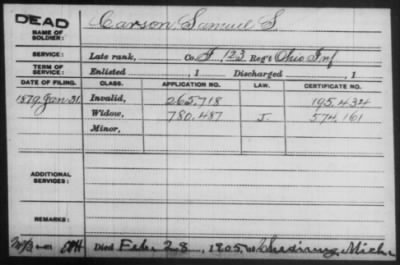 DEAD
NAME OF SOLDIER: Carson, Samuel S.
SERVICE: Late rank, Co. F, 123 Reg't Ohio Inf
TERM OF SERVICE: Enlisted , 1 Discharged , 1
DATE OF FILING. CLASS. APPLICATION NO. LAW. CERTIFICATE NO.
1879 Jan. 31 Invalid, 265.718 195.434
Widow, 780.487 J. 574,161
Minor,
ADDITIONAL SERVICES:
REMARKS:
Died Feb. 28, 1905 at Mich